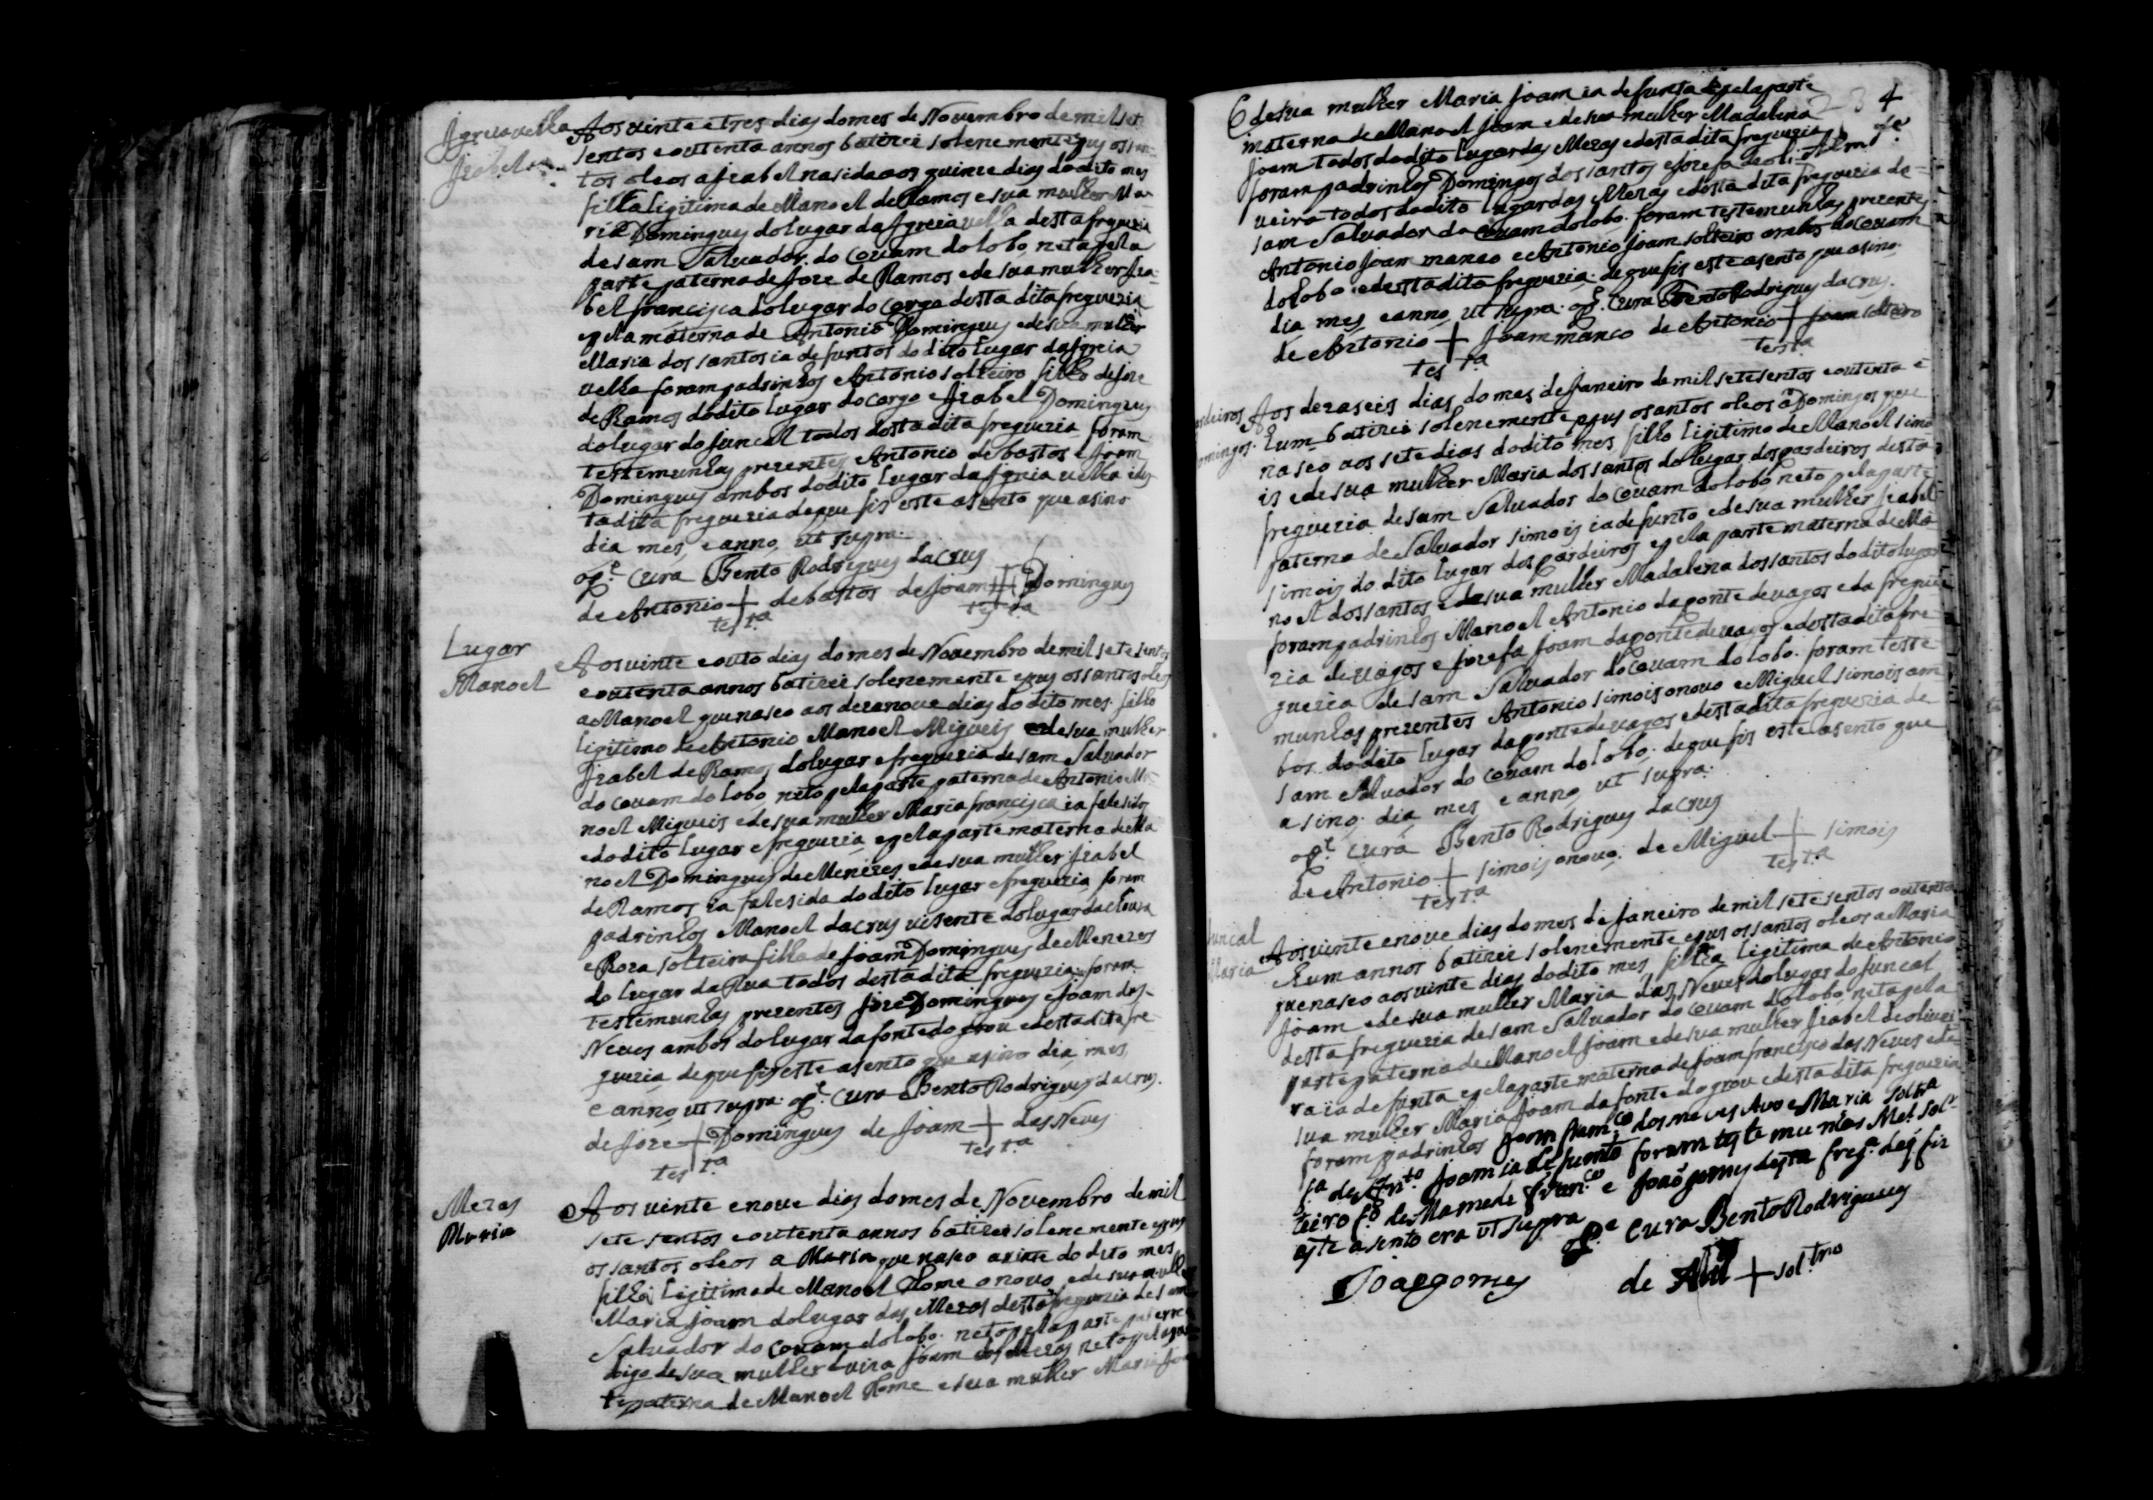 Igreia velha
Izabel
Aos vinte e tres dias do mes de Novembro de mil set
sentos e outenta annos batizei solenemente e pus os san-
tos oleos a Izabel nasida aos quinze dias do dito mes
filha ligitima de Manoel de Ramos e sua mulher Ma
ria Domingues do lugar da Igreia velha desta freguezia
de sam Salvador do Couam do lobo neta pela
parte paterna de Joze de Ramos e de sua mulher Iza-
bel francisca do lugar do Corgo desta dita freguezia
e pela materna de Antonio Domingues e de sua mulher
Maria dos santos ia defuntos do dito lugar da Igreia
velha foram padrinhos Antonio solteiro filho de Joze
de Ramos do dito lugar do Corgo e Izabel Domingues
do lugar do Juncal todos desta dita freguezia foram
testemunhas prezentes Antonio de bastos e Joam
Domingues ambos do dito lugar da Igreia velha e des
ta dita freguezia de que fis este asento que asino
dia mes, e anno, ut supra.
o P.e Cura Bento Rodrigues da Crus
de Antonio + de bastos de Joam # Domingues
test.a test.a
Lugar
Manoel
Aos vinte e outo dias do mes de Novembro de mil sete sentos
e outenta annos batizei solenemente e pus os santos oleos
a Manoel que naseo aos dezanove dias do dito mes. filho
ligitimo de Antonio Manoel Migueis e de sua mulher
Izabel de Ramos do lugar e freguezia de sam Salvador
do Couam do lobo, neto pela parte paterna de Antonio Ma-
noel Migueis e de sua mulher Maria francisca ia falesidos
e do dito lugar e freguezia e pela parte materna de Ma
noel Domingues de Menezes e de sua mulher Izabel
de Ramos ia falesida do dito lugar e freguezia foram
padrinhos Manoel da Crus visente do lugar da
e Roza solteira filha de Joam Domingues de Menezes
do lugar da Rua todos desta dita freguezia foram
testemunhas prezentes Joze Domingues e Joam das
Neves ambos do lugar da fonte do grou e desta dita fre-
guezia de que fis este asento que asino dia, mes,
e anno, ut supra. o P.e Cura Bento Rodrigues da Crus.
de Joze + Domingues de Joam + das Neves
test.a test.a
Mezas
Maria
Aos vinte e nove dias do mes de Novembro de mil
sete sentos e outenta annos batizei solenemente e pus
os santos oleos a Maria que naseo a vinte do dito mes
filha ligitima de Manoel Home o novo e de sua mulher
Maria Joam do lugar das Mezas desta freguezia de sam
Salvador do Couam do lobo. neto pela parte paterna
digo de sua mulher Joam das Mezas neto pela par
te paterna de Manoel Home e sua mulher Maria Jo
4
E de sua mulher Maria Joam ia defunta e pela parte
materna de Manoel Joam e de sua mulher Madalena
Joam todos do dito lugar das Mezas e desta dita freguezia
foram padrinhos Domingos dos santos e Jozefa de oli-
veira todos do dito lugar das Mezas e desta dita freguezia de
sam Salvador do Couam do lobo. foram testemunhas prezentes
Antonio Joam manco e Antonio Joam solteiro ambos do Couam
do lobo e desta dita freguezia. de que fis este asento que asino.
dia mes e anno, ut supra. o P.e Cura Bento Rodrigues da Crus.
de Antonio + Joam manco de Antonio + Joam solteiro
test.a test.a
ardeiros
omingos.
Aos dezaseis dias do mes de Janeiro de mil setesentos e outenta e
hum batizei solenemente e pus os santos oleos a Domingos que
naseo aos sete dias do dito mes filho ligitimo de Manoel simo
is e de sua mulher Maria dos santos do lugar dos pardeiros desta
freguezia de sam Salvador do Couam do lobo neto pela parte
paterna de Salvador simois ia defunto e de sua mulher Izabel
simois do dito lugar dos pardeiros e pela parte materna de Ma
noel dos santos e de sua mulher Madalena dos santos do dito lugar
foram padrinhos Manoel Antonio da ponte de vagos e da fregue
zia de vagos e Jozefa Joam da ponte de vagos e desta dita fre-
guezia de sam Salvador do Couam do lobo. foram teste
munhas prezentes Antonio simois o novo e Miguel simois am
bos do dito lugar da ponte de vagos e desta dita freguezia de
sam Salvador do Couam do lobo. de que fis este asento que
asino. dia, mes, e anno, ut supra.
o P.e Cura Bento Rodrigues da Crus
de Antonio + simois o novo. de Miguel + simois
test.a test.a
uncal
Maria
Aos vinte e nove dias do mes de Janeiro de mil setesentos outenta
e hum annos batizei solenemente e pus os santos oleos a Maria
que naseo aos vinte dias do dito mes, filha ligitima de Antonio
Joam e de sua mulher Maria das Neves do lugar do Juncal
desta freguezia de sam Salvador do Couam do lobo, neta pela
parte paterna de Manoel Joam e de sua mulher Izabel de olivei
ra ia defunta e pela parte materna de Joam francisco das Neves e de
sua mulher Maria Joam da fonte do grou e desta dita freguezia
foram padrinhos Joam fran.co das neves Avo e Maria solt.a
f.a de Ant.o Joam ia defunto foram testemunhas M.el sol-
teiro f.o de Mamede Fran.co e João gomes desta freg.a de q fiz
este asento era ut supra
o P.e Cura Bento Rodrigues
João gomes de M.el + sol.tro